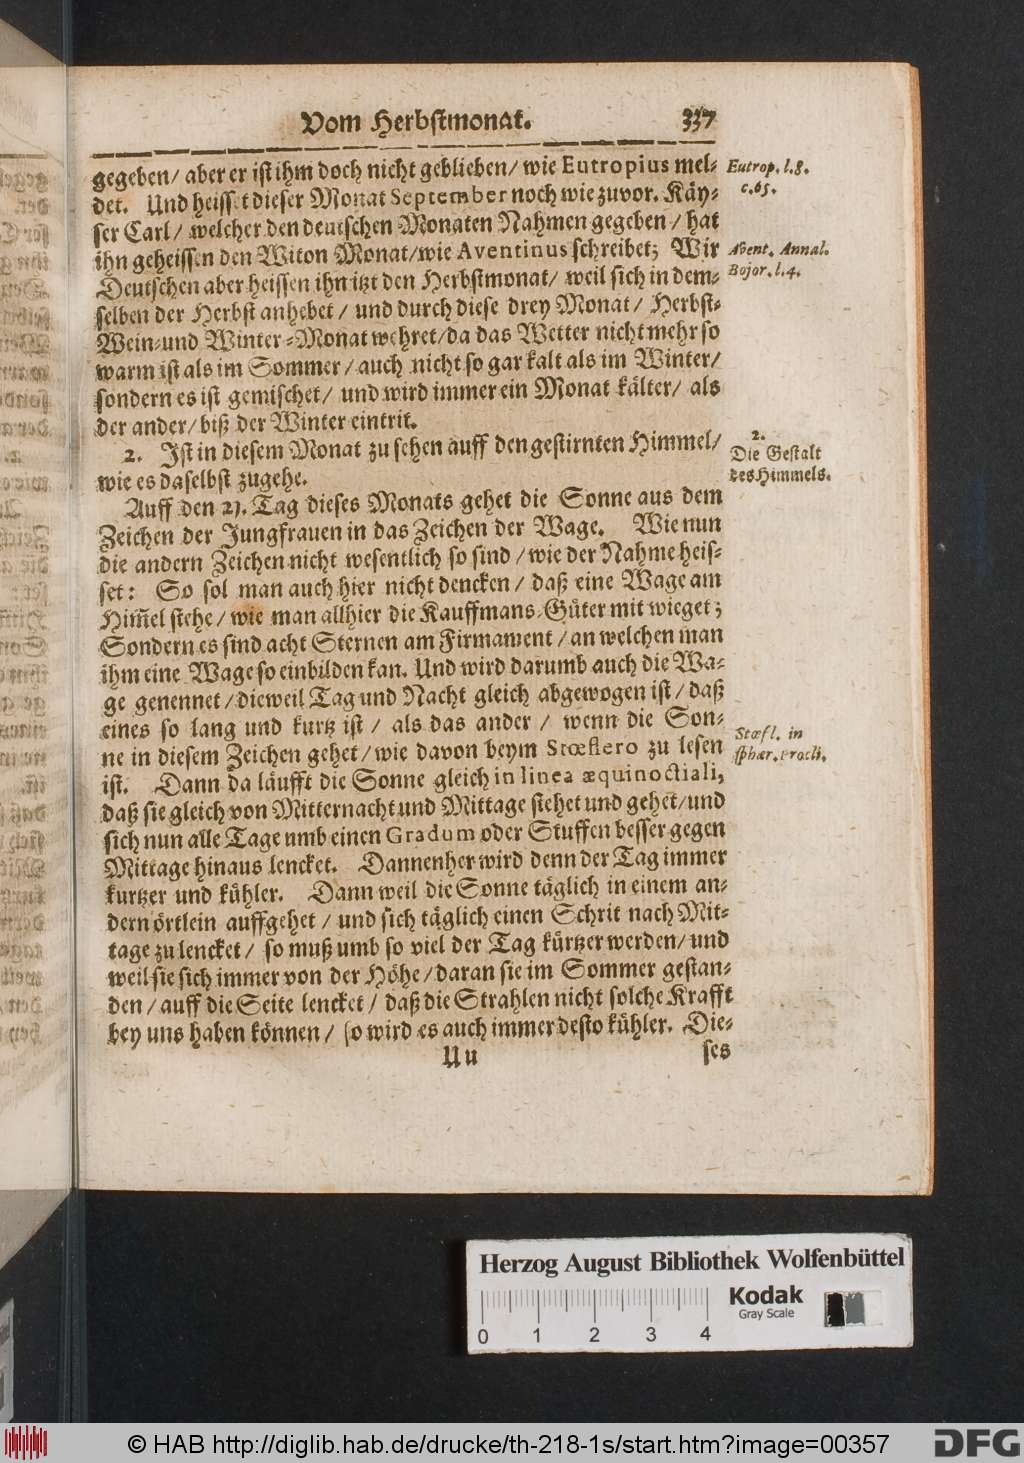 Vom Herbstmonat. 337
gegeben/ aber er ist ihm doch nicht geblieben/ wie Eutropius mel-
det. Und heisset dieser Monat September noch wie zuvor. Käy-
ser Carl/ welcher den deutschen Monaten Nahmen gegeben/ hat
ihn geheissen den Witon Monat/ wie Aventinus schreibet; Wir
Deutschen aber heissen ihn itzt den Herbstmonat/ weil sich in dem-
selben der Herbst anhebet/ und durch diese drey Monat/ Herbst-
Wein- und Winter-Monat wehret/ da das Wetter nicht mehr so
warm ist als im Sommer/ auch nicht so gar kalt als im Winter/
sondern es ist gemischet/ und wird immer ein Monat kälter/ als
der ander/ biß der Winter eintrit.
2. Ist in diesem Monat zu sehen auff den gestirnten Himmel/
wie es daselbst zugehe.
Auff den 21. Tag dieses Monats gehet die Sonne aus dem
Zeichen der Jungfrauen in das Zeichen der Wage. Wie nun
die andern Zeichen nicht wesentlich so sind/ wie der Nahme heis-
set: So sol man auch hier nicht dencken/ daß eine Wage am
Him̃el stehe/ wie man allhier die Kauffmans-Güter mit wieget;
Sondern es sind acht Sternen am Firmament/ an welchen man
ihm eine Wage so einbilden kan. Und wird darumb auch die Wa-
ge genennet/ dieweil Tag und Nacht gleich abgewogen ist/ daß
eines so lang und kurtz ist/ als das ander/ wenn die Son-
ne in diesem Zeichen gehet/ wie davon beym Stœflero zu lesen
ist. Dann da läufft die Sonne gleich in linea æquinoctiali,
daß sie gleich von Mitternacht und Mittage stehet und gehet/ und
sich nun alle Tage umb einen Gradum oder Stuffen besser gegen
Mittage hinaus lencket. Dannenher wird denn der Tag immer
kurtzer und kühler. Dann weil die Sonne täglich in einem an-
dern örtlein auffgehet/ und sich täglich einen Schrit nach Mit-
tage zu lencket/ so muß umb so viel der Tag kürtzer werden/ und
weil sie sich immer von der Höhe/ daran sie im Sommer gestan-
den/ auff die Seite lencket/ daß die Strahlen nicht solche Krafft
bey uns haben können/ so wird es auch immer desto kühler. Die-
Uu ses
Eutrop. l. 8.
c. 65.
Avent. Annal.
Bojor. l. 4.
2.
Die Gestalt
des Himmels.
Stœfl. in
sphær. Procli.
Herzog August Bibliothek Wolfenbüttel
0 1 2 3 4
Kodak
Gray Scale
© HAB http://diglib.hab.de/drucke/th-218-1s/start.htm?image=00357
DFG